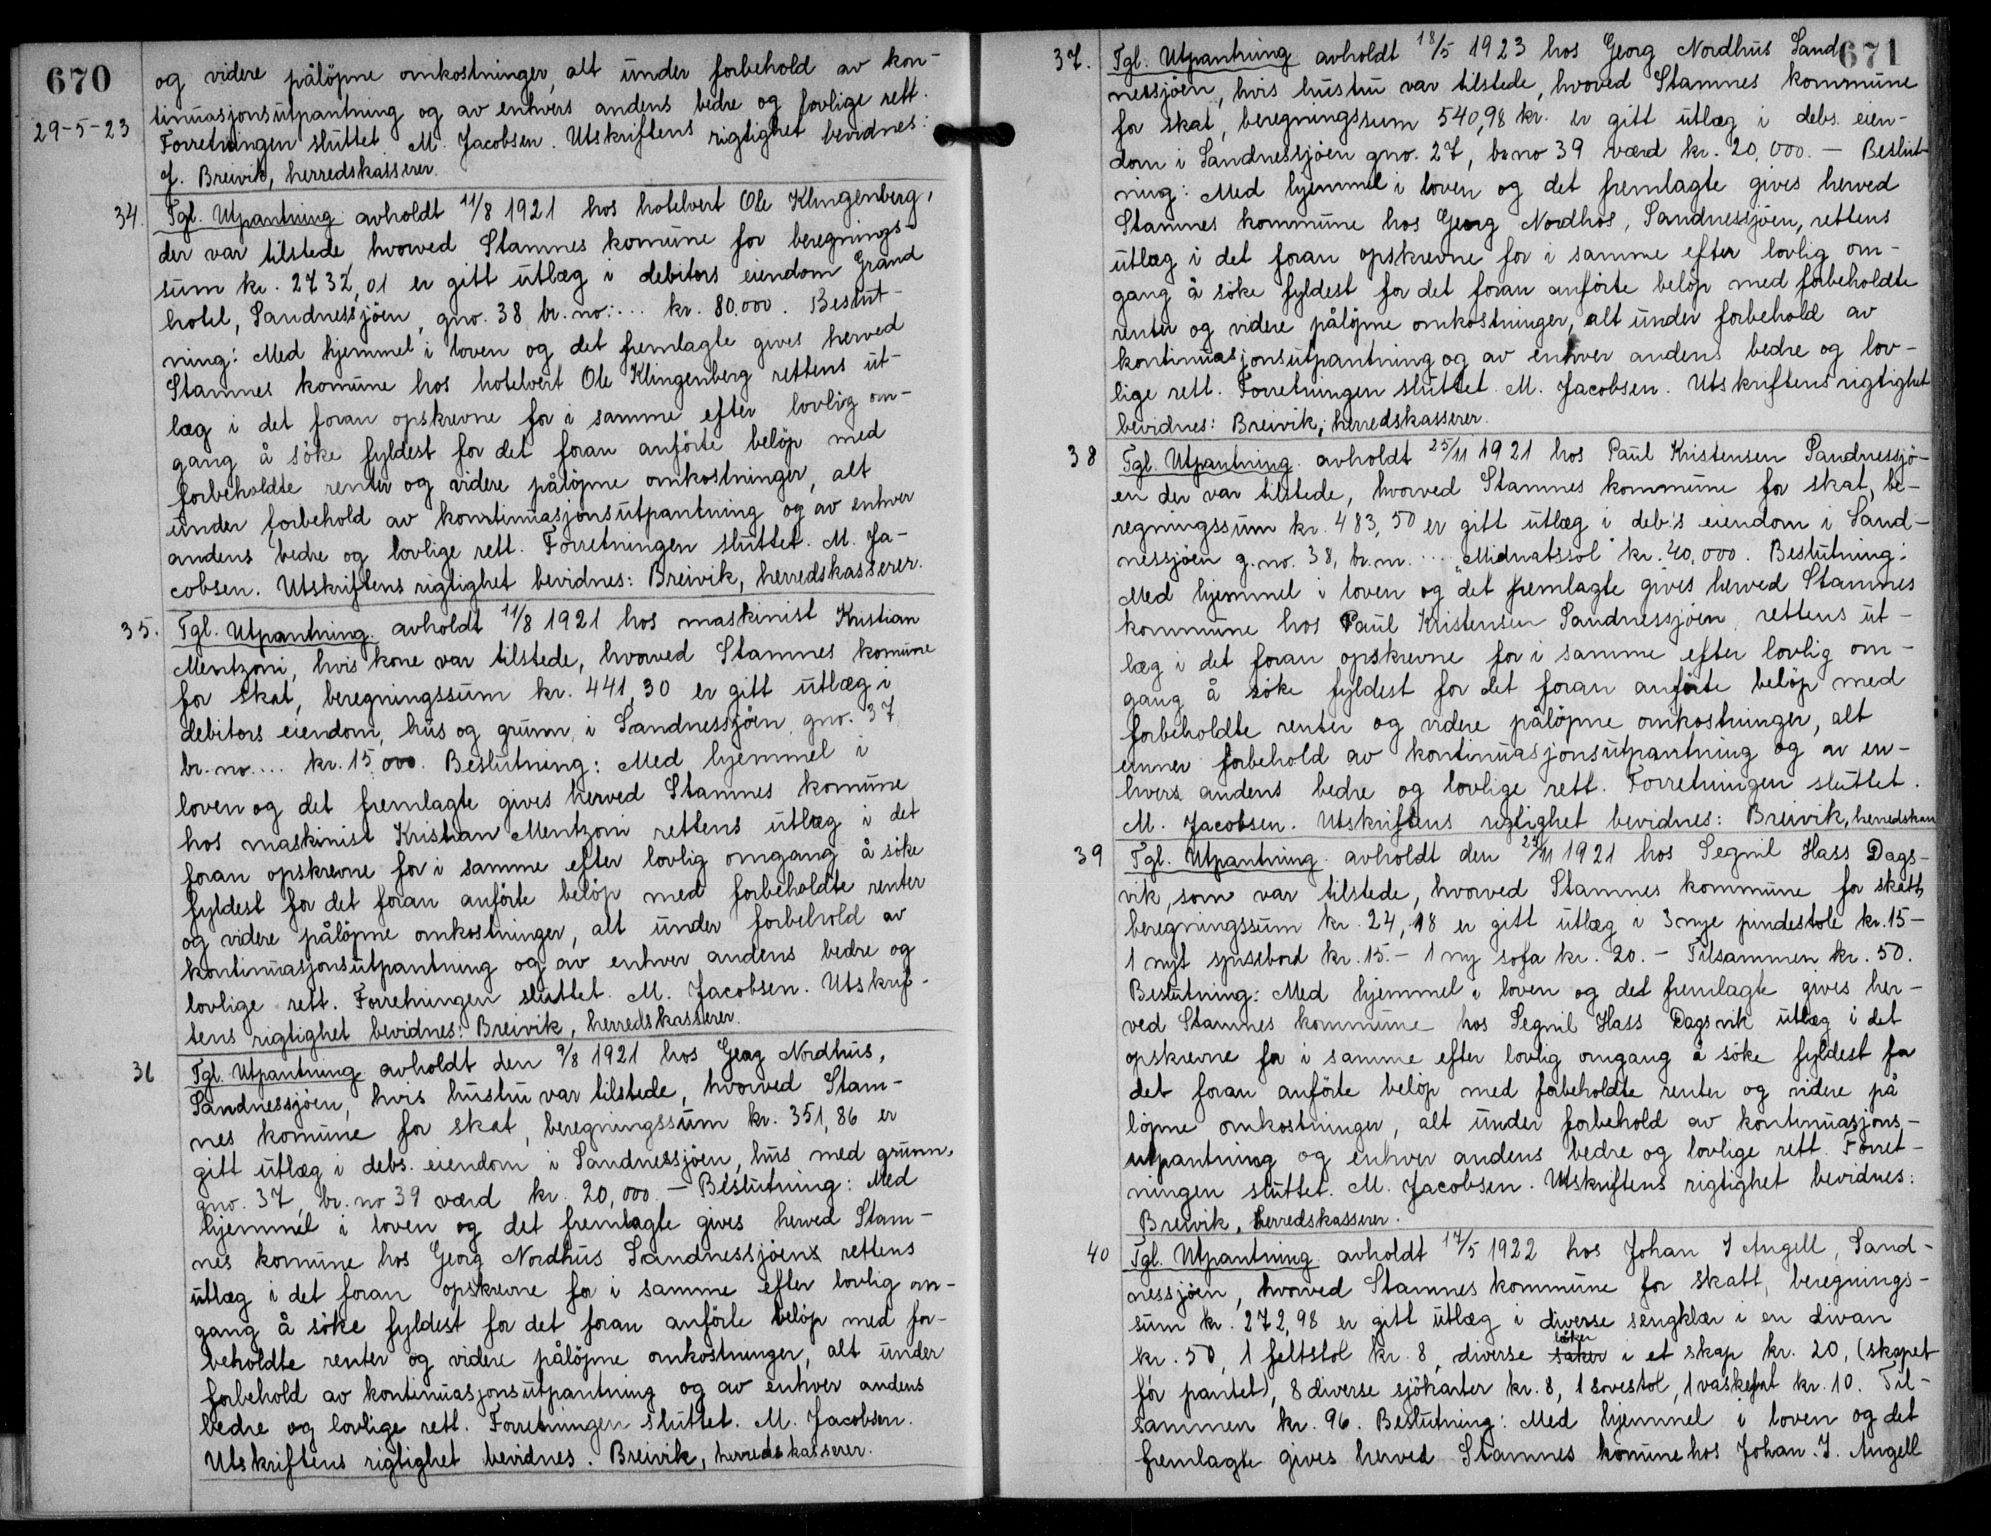 670
og videre påløpne omkostninger, alt under forbehold av kon-
tinuasjonsutpantning og av enhvers andens bedre og lovlige rett.
29-5-23
Forretningen sluttet. M. Jacobsen. Utskriftens rigtighet bevidnes:
J. Breivik, herredskasserer.
34. Tgl. Utpantning avholdt 11/8 1921 hos hotelvert Ole Klingenberg,
der var tilstede, hvorved Stamnes komune for beregnings-
sum kr. 2732,01 er gitt utlæg i debitors eiendom Grand
hotel, Sandnessjöen, gno. 38 br. no:... kr. 80.000. Beslut-
ning: Med hjemmel i loven og det fremlagte gives herved
Stamnes komune hos hotelvert Ole Klingenberg rettens ut-
læg i det foran opskrevne for i samme efter lovlig om-
gang å söke fyldest for det foran anförte belöp med
forbeholdte renter og videre pålöpne omkostninger, alt
under forbehold av kontinuasjonsutpantning og av enhver
andens bedre og lovlige rett. Forretningen sluttet. M. Ja-
cobsen. Utskriftens rigtighet bevidnes: Breivik, herredskasserer.
35. Tgl. Utpantning avholdt 11/8 1921 hos maskinist Kristian
Mentzoni, hvis kone var tilstede, hvorved Stamnes komune
for skat, beregningssum kr. 441,30 er gitt utlæg i
debitors eiendom, hus og grunn, i Sandnessjöen gno. 37,
br. no.... kr. 15.000. Beslutning: Med hjemmel i
loven og det fremlagte gives herved Stamnes komune
hos maskinist Kristian Mentzoni rettens utlæg i det
foran opskrevne for i samme efter lovlig omgang å söke
fyldest for det foran anförte belöp med forbeholdte renter
og videre pålöpne omkostninger, alt under forbehold av
kontinuasjonsutpantning og av enhver andens bedre og
lovlige rett. Forretningen sluttet. M. Jacobsen. Utskrif-
tens rigtighet bevidnes: Breivik, herredskasserer.
36 Tgl. Utpantning avholdt den 9/8 1921 hos Georg Nordhus,
Sandnessjöen, hvis hustru var tilstede, hvorved Stam-
nes komune for skat, beregningssum kr. 351,86 er
gitt utlæg i debs. eiendom i Sandnessjöen, hus med grunn,
gno. 37, br. no 39 værd kr. 20,000. - Beslutning: Med
hjemmel i loven og det fremlagte gives herved Stam-
nes komune hos Georg Nordhus Sandnessjöens rettens
utlæg i det foran opskrevne for i samme efter lovlig om-
gang å söke fyldest for det foran anförte belöp med for-
beholdte renter og videre pålöpne omkostninger, alt under
forbehold av kontinuasjonsutpantning og av enhver andens
bedre og lovlige rett. Forretningen sluttet. M. Jacobsen.
Utskriftens rigtighet bevidnes. Breivik, herredskasserer.
671
37. Tgl. Utpantning avholdt 18/5 1923 hos Georg Nordhus Sand
nessjöen, hvis hustru var tilstede, hvoved Stamnes kommune
for skat, beregningssum 540,98 kr. er gitt utlæg i debs. eien-
dom i Sandnessjöen gno. 27, br no 39 værd kr. 20,000. - Beslut-
ning: Med hjemmel i loven og det fremlagte gives herved
Stamnes kommune hos Georg Nordhos, Sandnessjöen, rettens
utlæg i det foran opskrevne for i samme efter lovlig om-
gang å söke fyldest for det foran anförte belöp med forbeholdte
renter og videre pålöpne omkostninger, alt under forbehold av
kontinuasjonsutpantning og av enhver andens bedre og lov-
lige rett. Forretningen sluttet. M. Jacobsen. Utskriftens rigtighet
bevidnes: Breivik, herredskasserer.
38 Tgl. Utpantning avholdt 25/11 1921 hos Paul Kristensen Sandnessjö-
en der var tilstede, hvorved Stamnes kommune for skat, be-
regningssum kr. 483,50 er gitt utlæg i deb's eiendom i Sand-
nessjöen g.no. 38, br.nr. .... "Midnatssol" kr. 40,000. Beslutning:
Med hjemmel i loven og det fremlagte gives herved Stamnes
kommune hos Paul Kristensen Sandnessjöen, rettens ut-
læg i det foran opskrevne for i samme efter lovlig om-
gang å söke fyldest for det foran anförte belöp med
forbeholdte renter og videre pålöpne omkostninger, alt
unner forbehold av kontinuasjonsutpantning og av en-
hvers andens bedre og lovlige rett. Forretningen sluttet.
M. Jacobsen. Utskriftens rigtighet bevidnes: Breivik, herredskas
39 Tgl. Utpantning avholdt den 25/11 1921 hos Segnil Hass Dags-
vik, som var tilstede, hvorved Stamnes kommune for skatt,
beregningssum kr. 24,18 er gitt utlæg i 3 nye pindestole kr. 15-
1 nyt spisebord kr. 15.- 1 ny sofa kr. 20.- Tilsammen kr. 50.
Beslutning: Med hjemmel i loven og det fremlagte gives her-
ved Stamnes kommune hos Segnil Hass Dagsvik utlæg i det
opskrevne for i samme efter lovlig omgang å söke fyldest for
det foran anförte belöp med forbeholdte renter og videre på
löpne omkostninger, alt under forbehold av kontinuasjons-
utpantning og enhver andens bedre og lovlige rett. Forret-
ningen sluttet. M. Jacobsen. Utskriftens rigtighet bevidnes:
Breivik, herredskasserer.
40 Tgl. Utpantning avholdt 17/5 1922 hos Johan J Angell, Sand-
nessjöen, hvorved Stamnes kommune for skatt, beregnings-
sum kr. 272,98 er gitt utlæg i diverse sengklær i en divan
kr. 50, 1 feltstol kr. 8, diverse saker böker i et skap kr. 20, (skapet
för pantet), 8 diverse sjökarter kr. 8, 1 sovestol, 1 vaskefat kr. 10. Til-
sammen kr. 96. Beslutning: Med hjemmel i loven og det
fremlagte gives herved Stamnes komune hos Johan. J. Angell